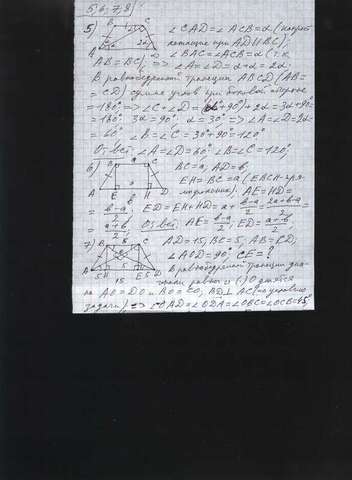 5,6,7,8)
5) ∠CAD=∠ACB=α (накрест
лежащие при AD||BC).
∠BAC=∠ACB=α (т.к.
AB=BC) => ∠A=∠D=α+α=2α.
В равнобедренной трапеции ABCD (AB=
=CD) сумма углов при боковой стороне
=180° => ∠C+∠D=(α+90°)+2α=3α+90°=
=180° 3α=90° α=30° => ∠A=∠D=2α=
=60° ∠B=∠C=30°+90°=120°
Ответ ∠A=∠D=60° ∠B=∠C=120°,
6) BC=a, AD=b,
EH=BC=a (EBCH-пря-
моугольник). AE=HD=
=(b-a)/2; ED=EH+HD=a+(b-a)/2=(2a+b-a)/2=
=(a+b)/2; Ответ AE=(b-a)/2; ED=(a+b)/2;
7) AD=15, BC=5, AB=CD,
∠AOD=90°, CE=?
В равнобедренной трапеции диа-
гонали равны и (·)O
на AO=DO и BO=CO, BD⊥AC (по условию
задачи) => ∠OAD=∠ODA=∠OBC=∠OCB=45°,